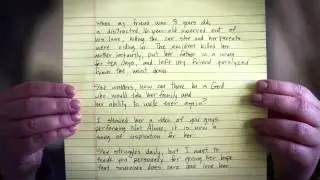 When my friend was 8 years old,
a distracted, 16-year-old swerved out of
his lane, hitting the car she and her parents
were riding in. The accident killed her
mother instantly, put her father in a coma
for ten days, and left my friend paralyzed
from the waist down.
She wonders, how can there be a God
who would take her family and
her ability to walk ever again?
I showed her a video of you guys
performing Not Alone, it is now a
song of inspiration for her.
She struggles daily, but I want to
thank you personally for giving her hope
that someone does care and love her.